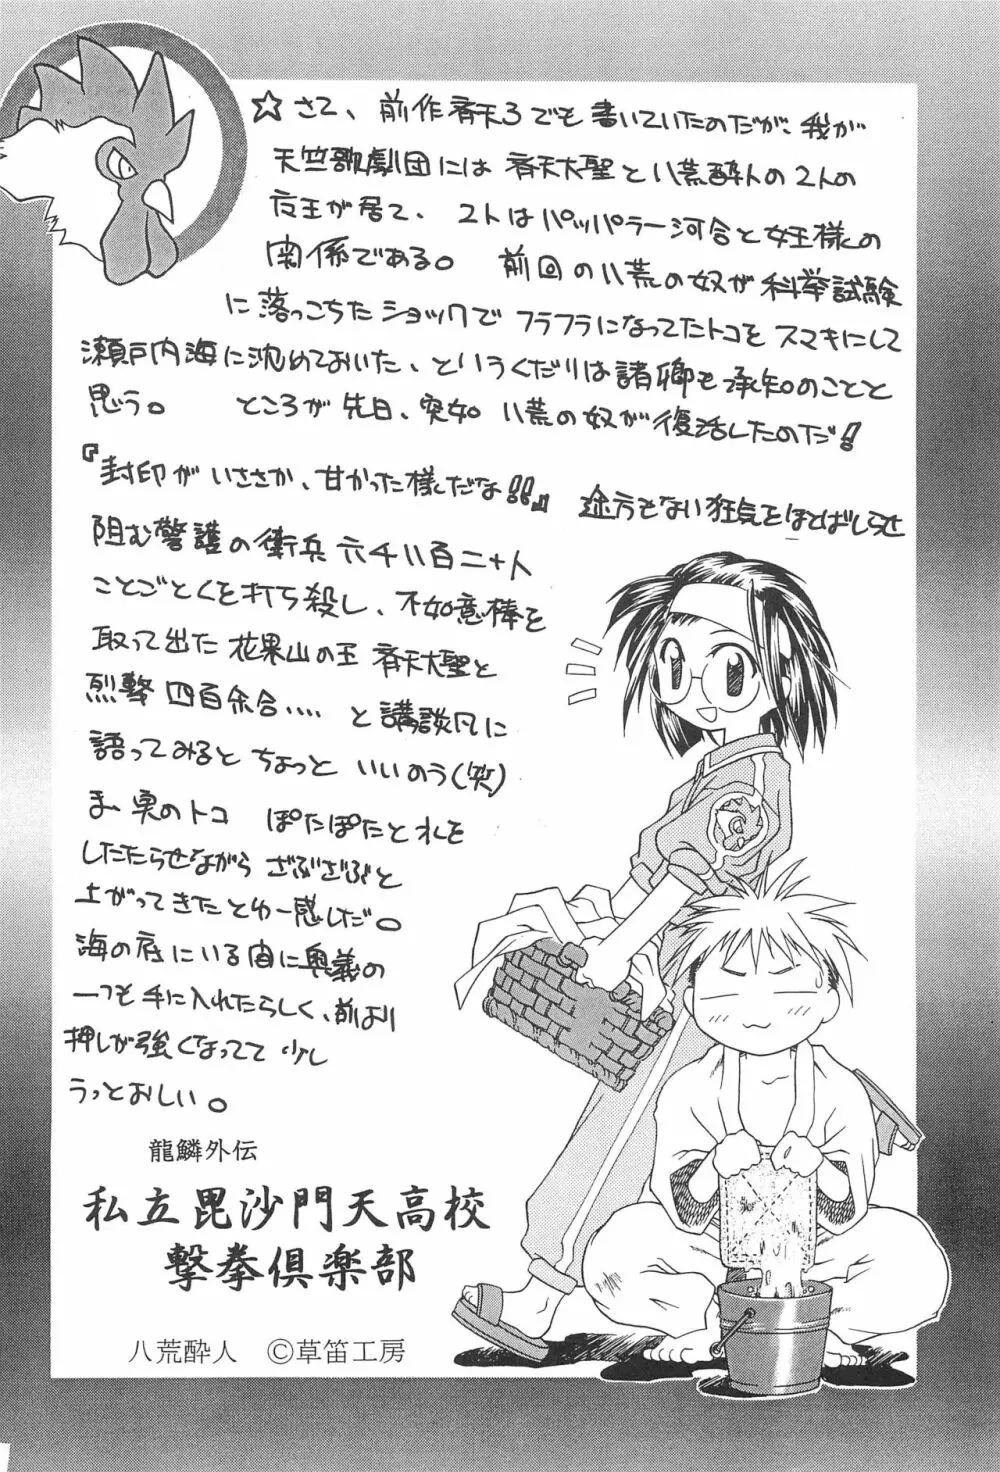 ☆さて、前作斉天3でも書いていたのだが、我が
天竺歌劇団には斉天大聖と八荒酔人の2人の
女王が居て、2人はパッパラー河合と女王様の
関係である。 前回の八荒の奴が科挙試験
に落っこちたショックでフラフラになってたトコをスマキにして
瀬戸内海に沈めておいた、というくだりは諸卿も承知のことと
思う。 ところが先日、突如八荒の奴が復活したのだ!
『封印がいささか、甘かった様だな!!』 途方もない狂気をほとばしらせ
阻む警護の衛兵六千八百二十人
ことごとくを打ち殺し、不如意棒を
取って出た花果山の王斉天大聖と
烈撃四百余合‥‥ と講談風に
語ってみるとちょっといいのう(笑)
ま、実のトコ ぽたぽたと水を
したたらせながら ざぶざぶと
上がってきたとゆー感じだ。
海の底にいる間に奥義の
一つも手に入れたらしく、前より
押しが強くなってて 少し
うっとおしい。
龍鱗外伝
私立毘沙門天高校
撃拳倶楽部
八荒酔人 ©草笛工房